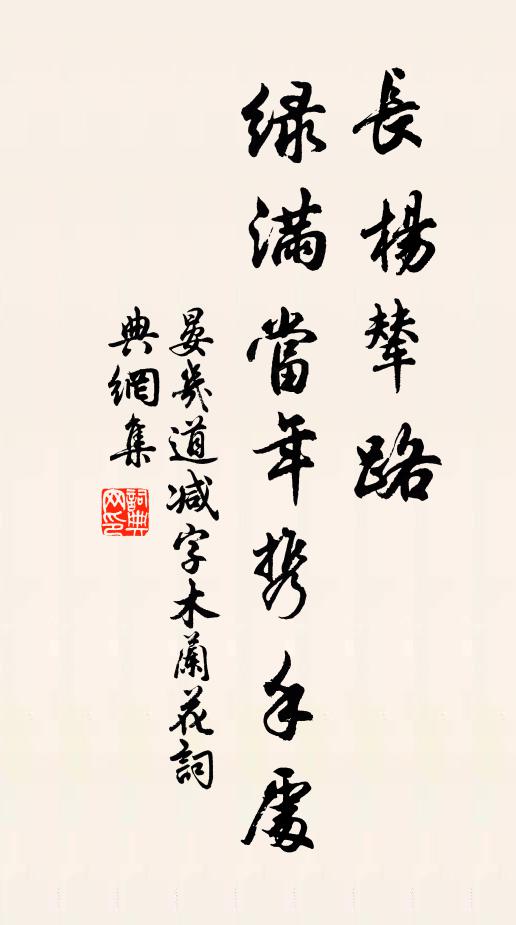 長楊輦路
綠滿當年携手處
晏幾道减字木蘭花詞
典網集
詞典網印